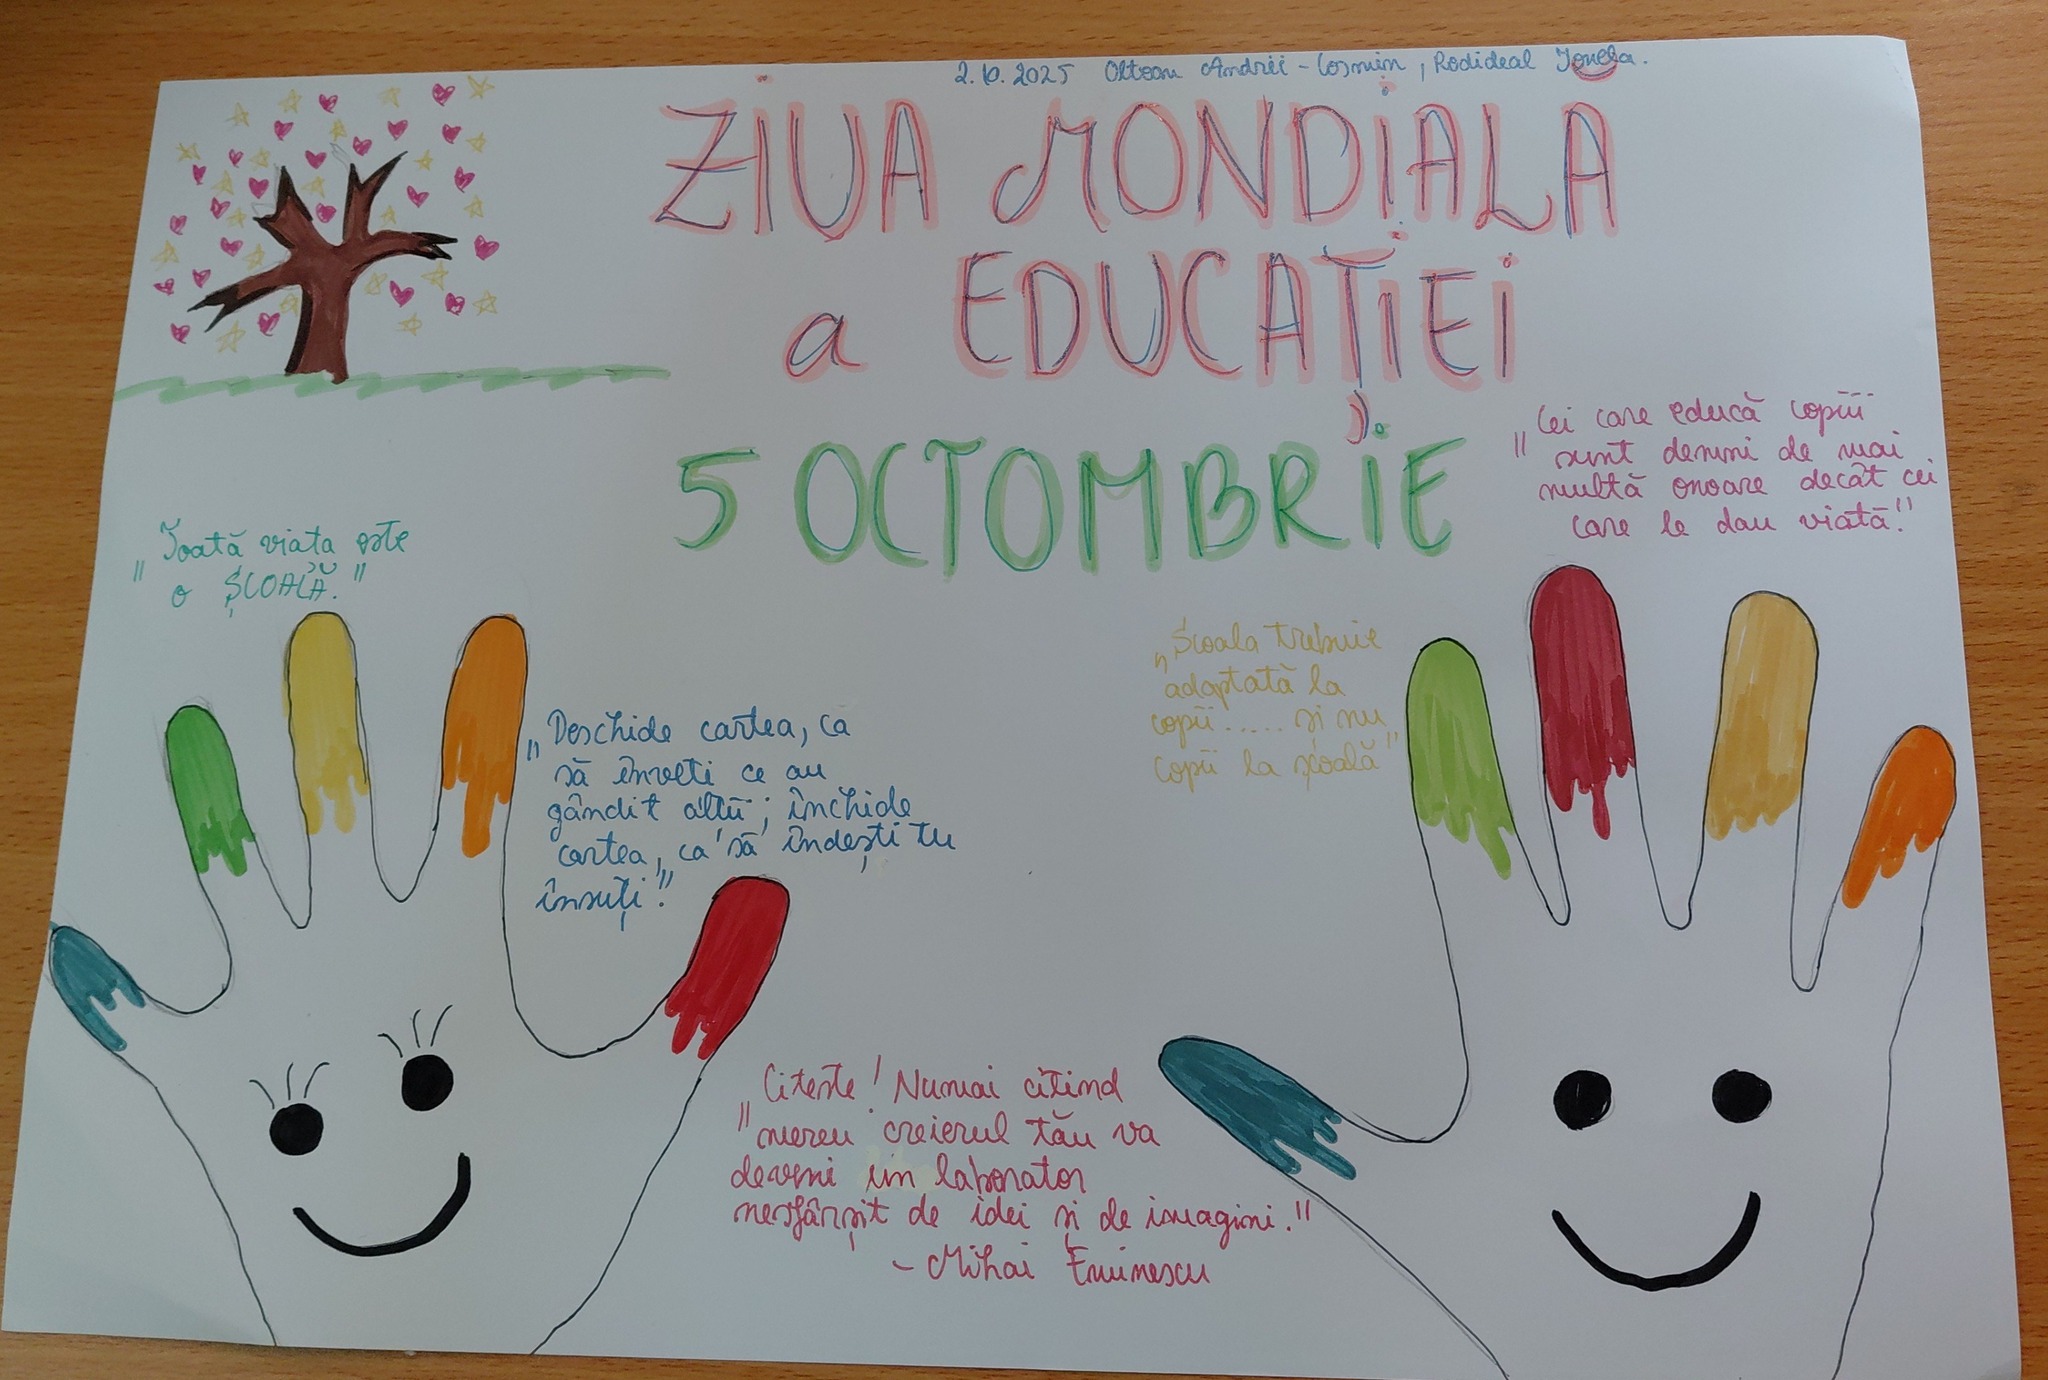 2.10.2025 Oltean Andrei-Cosmin, Rodideal Ionela.
ZIUA MONDIALĂ
a EDUCAȚIEI
5 OCTOMBRIE
"Cei care educă copiii
sunt demni de mai
multă onoare decât cei
care le dau viată."
"Toată viata este
o ȘCOALĂ."
"Școala trebuie
adaptată la
copii..... și nu
copii la școală"
"Deschide cartea, ca
să înveti ce au
gândit altii; închide
cartea, ca să îndești tu
însuți."
"Citeste! Numai citind
mereu creierul tău va
deveni un laborator
nesfârșit de idei și de imagini."
- Mihai Eminescu